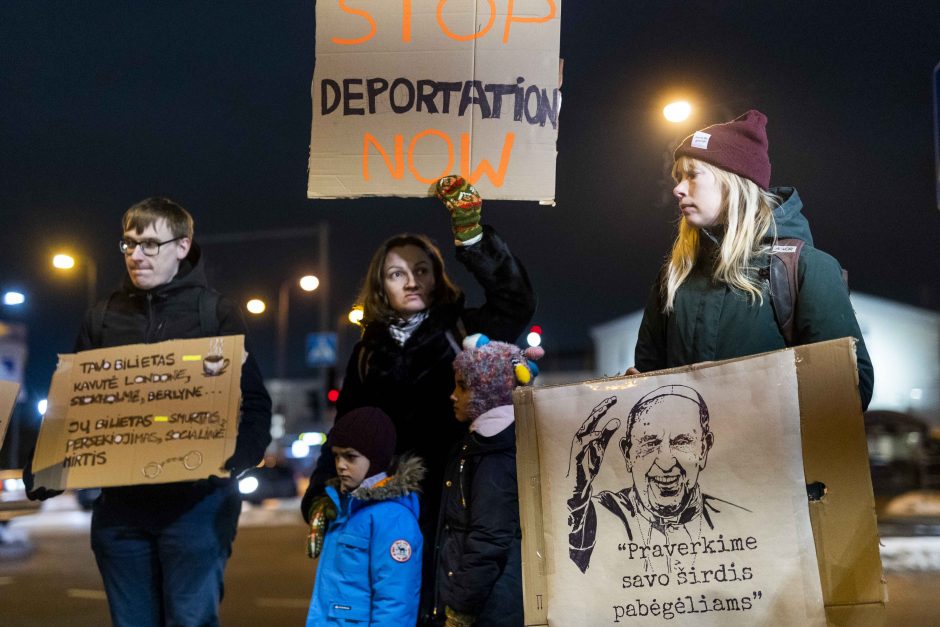 STOP
DEPORTATION
NOW
TAVO BILIETAS –
KAVUTĖ LONDONE,
STOKHOLME, BERLYNE...
JŲ BILIETAS – SMURTIS,
PERSEKIOJIMAS, SOCIALINĖ
MIRTIS
“Praverkime
savo širdis
pabėgėliams”